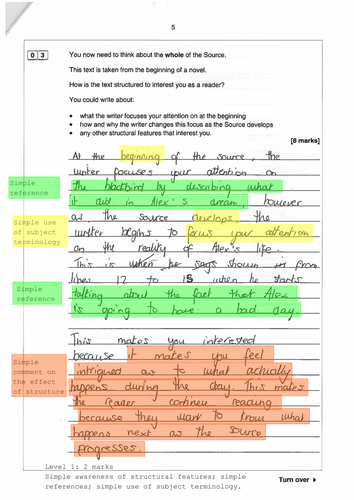 5
0 3
You now need to think about the whole of the Source.
This text is taken from the beginning of a novel.
How is the text structured to interest you as a reader?
You could write about:
• what the writer focuses your attention on at the beginning
• how and why the writer changes this focus as the Source develops
• any other structural features that interest you.
[8 marks]
At the beginning of the source, the
writer focuses your attention on
Simple reference
the blackbird by describing what
it did in Alex's dream, however
Simple use of subject terminology
as the source develops, the
writer begins to focus your attention
on the reality of Alex's life.
This is when he says shown in from
lines 12 to 15 when he starts
Simple reference
talking about the fact that Alex
is going to have a bad day.
This makes you interested
Simple comment on the effect of structure
because it makes you feel
intrigued as to what actually
happens during the day. This makes
the reader continue reading
because they want to know what
happens next as the source
progresses.
Level 1: 2 marks
Simple awareness of structural features; simple
references; simple use of subject terminology.
Turn over ►